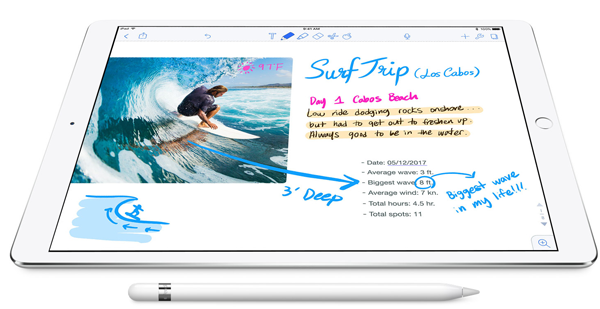 iPad
9:41 AM
100%
97F
Surf Trip (Los Cabos)
Day 1 Cabos Beach
Low ride dodging rocks onshore...
but had to get out to freshen up.
Always good to be in the water.
- Date: 05/12/2017
- Average wave: 3 ft.
- Biggest wave: 8 ft.
- Average wind: 7 kn.
- Total hours: 4.5 hr.
- Total spots: 11
3' Deep
Biggest wave
in my life!!!